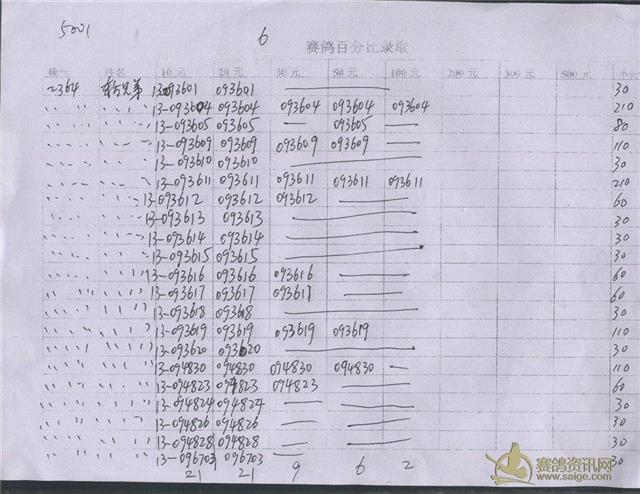 5001
6
赛鸽百分比录取
姓名 10元 20元 30元 50元 100元 200元 300元 500元
2364 兄弟 13-093601 093601 —— 30
〃 〃 13-093604 093604 093604 093604 093604 210
〃 〃 13-093605 093605 — 093605 — 80
〃 〃 13-093609 093609 093609 093609 — 110
〃 〃 13-093610 093610 —— 30
〃 〃 13-093611 093611 093611 093611 093611 210
〃 〃 13-093612 093612 093612 —— 60
〃 〃 13-093613 093613 —— 30
〃 〃 13-093614 093614 —— 30
〃 〃 13-093615 093615 —— 30
〃 〃 13-093616 093616 093616 —— 60
〃 〃 13-093617 093617 093617 —— 60
〃 〃 13-093618 093618 —— 30
〃 〃 13-093619 093619 093619 093619 110
〃 〃 13-093620 093620 —— 30
〃 〃 13-094830 094830 094830 094830 — 110
〃 〃 13-094823 094823 094823 —— 60
〃 〃 13-094824 094824 —— 30
〃 〃 13-094826 094826 —— 30
〃 〃 13-094828 094828 —— 30
〃 〃 13-096703 096703 —— 30
21 21 9 6 2
赛鸽资讯网
www.saige.com